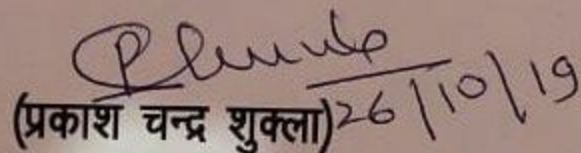 (प्रकाश चन्द्र शुक्ला) 26/10/19